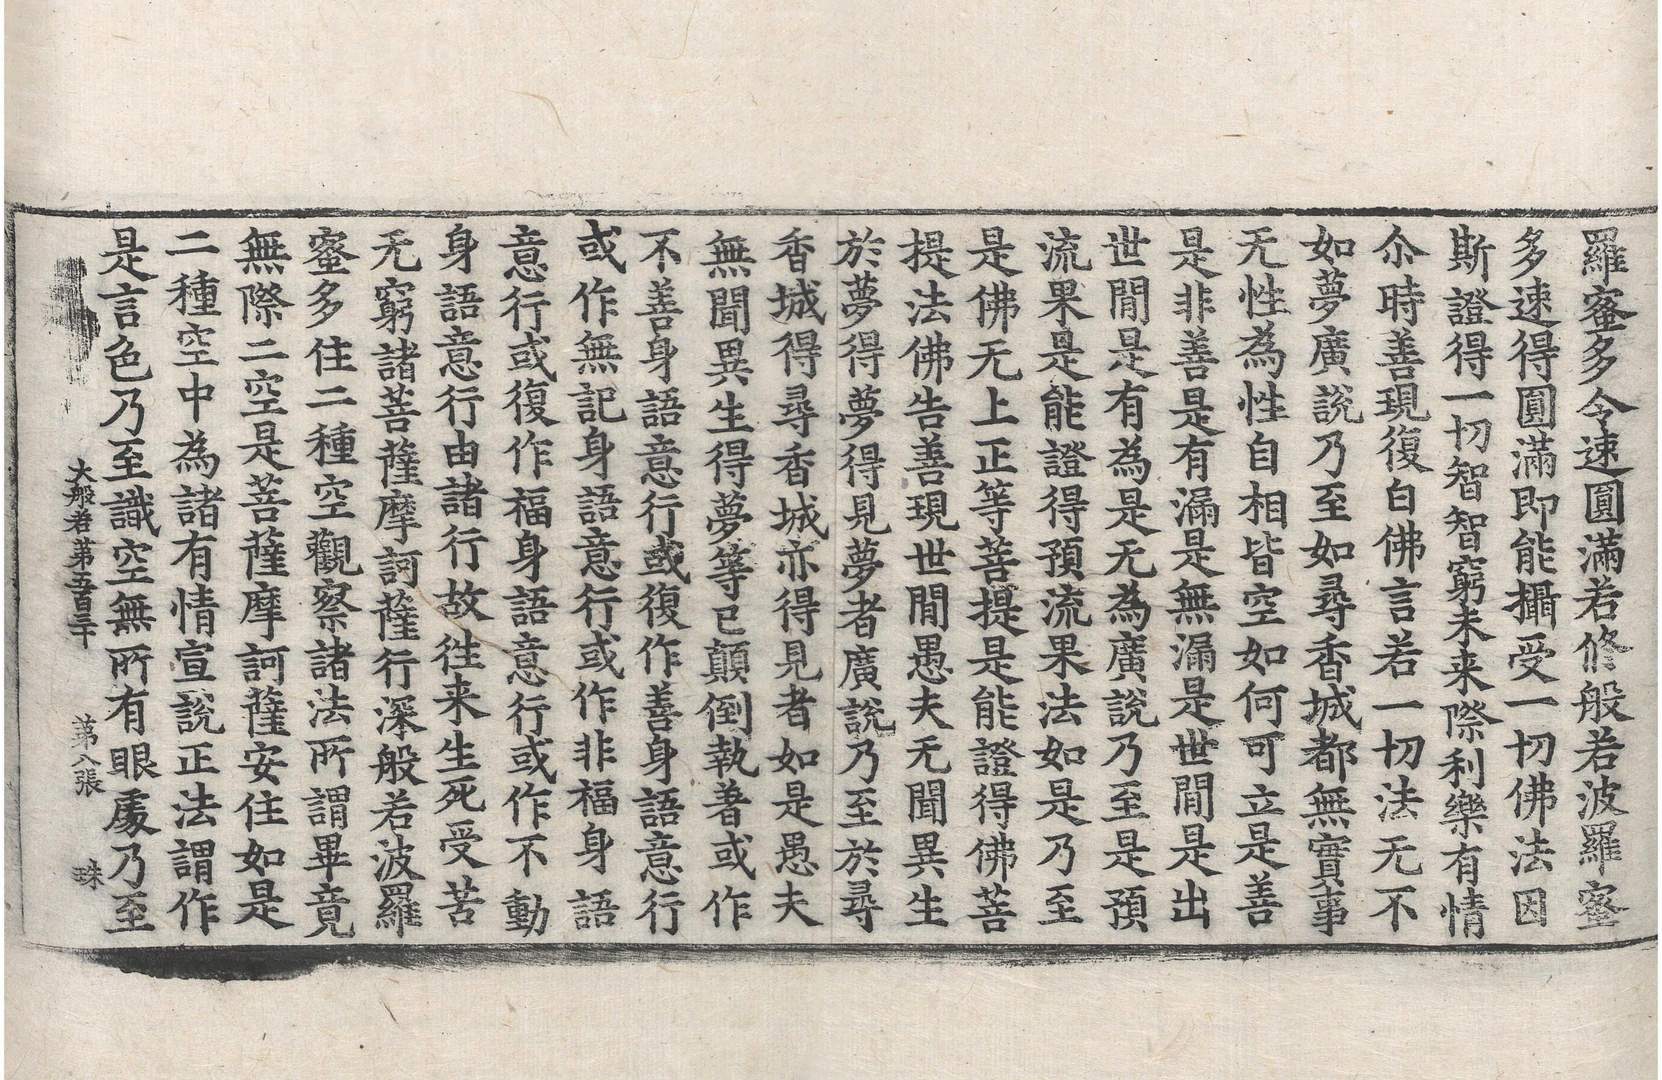 羅蜜多令速圓滿若修般若波羅蜜
多速得圓滿即能攝受一切佛法因
斯證得一切智智窮未来際利樂有情
尒時善現復白佛言若一切法无不
如夢廣說乃至如尋香城都無實事
无性為性自相皆空如何可立是善
是非善是有漏是無漏是世間是出
世間是有為是无為廣說乃至是預
流果是能證得預流果法如是乃至
是佛无上正等菩提是能證得佛菩
提法佛告善現世間愚夫无聞異生
於夢得夢得見夢者廣說乃至於尋
香城得尋香城亦得見者如是愚夫
無聞異生得夢等已顛倒執著或作
不善身語意行或復作善身語意行
或作無記身語意行或作非福身語
意行或復作福身語意行或作不動
身語意行由諸行故往来生死受苦
无窮諸菩薩摩訶薩行深般若波羅
蜜多住二種空觀察諸法所謂畢竟
無際二空是菩薩摩訶薩安住如是
二種空中為諸有情宣說正法謂作
是言色乃至識空無所有眼處乃至
大般若第五百三十 第八張 珠